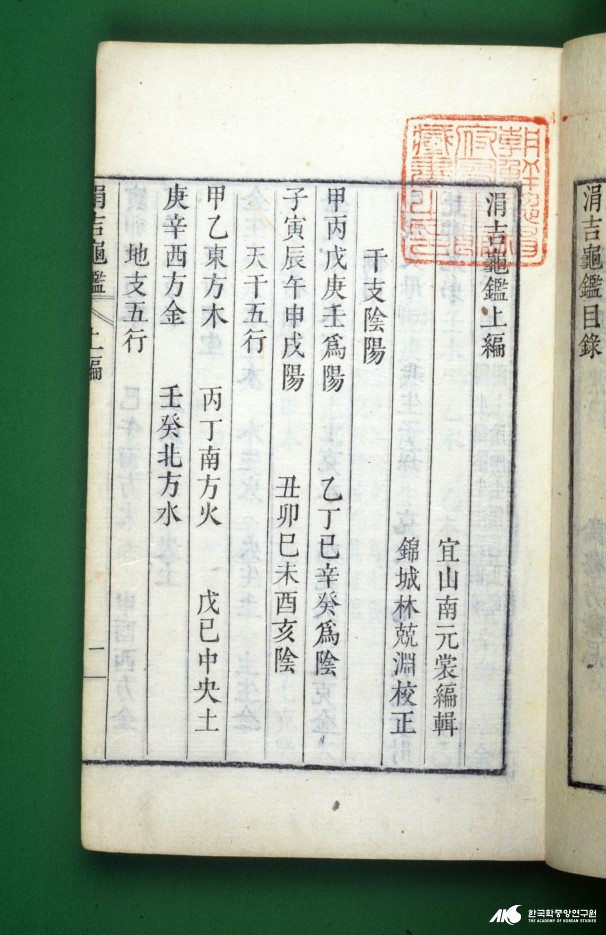 涓吉龜鑑目錄
朝鮮總督府圖書館藏書之印
涓吉龜鑑上編
宜山南元裳編輯
錦城林兢淵校正
干支陰陽
甲丙戊庚壬爲陽 乙丁己辛癸爲陰
子寅辰午申戌陽 丑卯巳未酉亥陰
天干五行
甲乙東方木 丙丁南方火 戊己中央土
庚辛西方金 壬癸北方水
地支五行
涓吉龜鑑 上編 一
AKS 한국학중앙연구원
THE ACADEMY OF KOREAN STUDIES